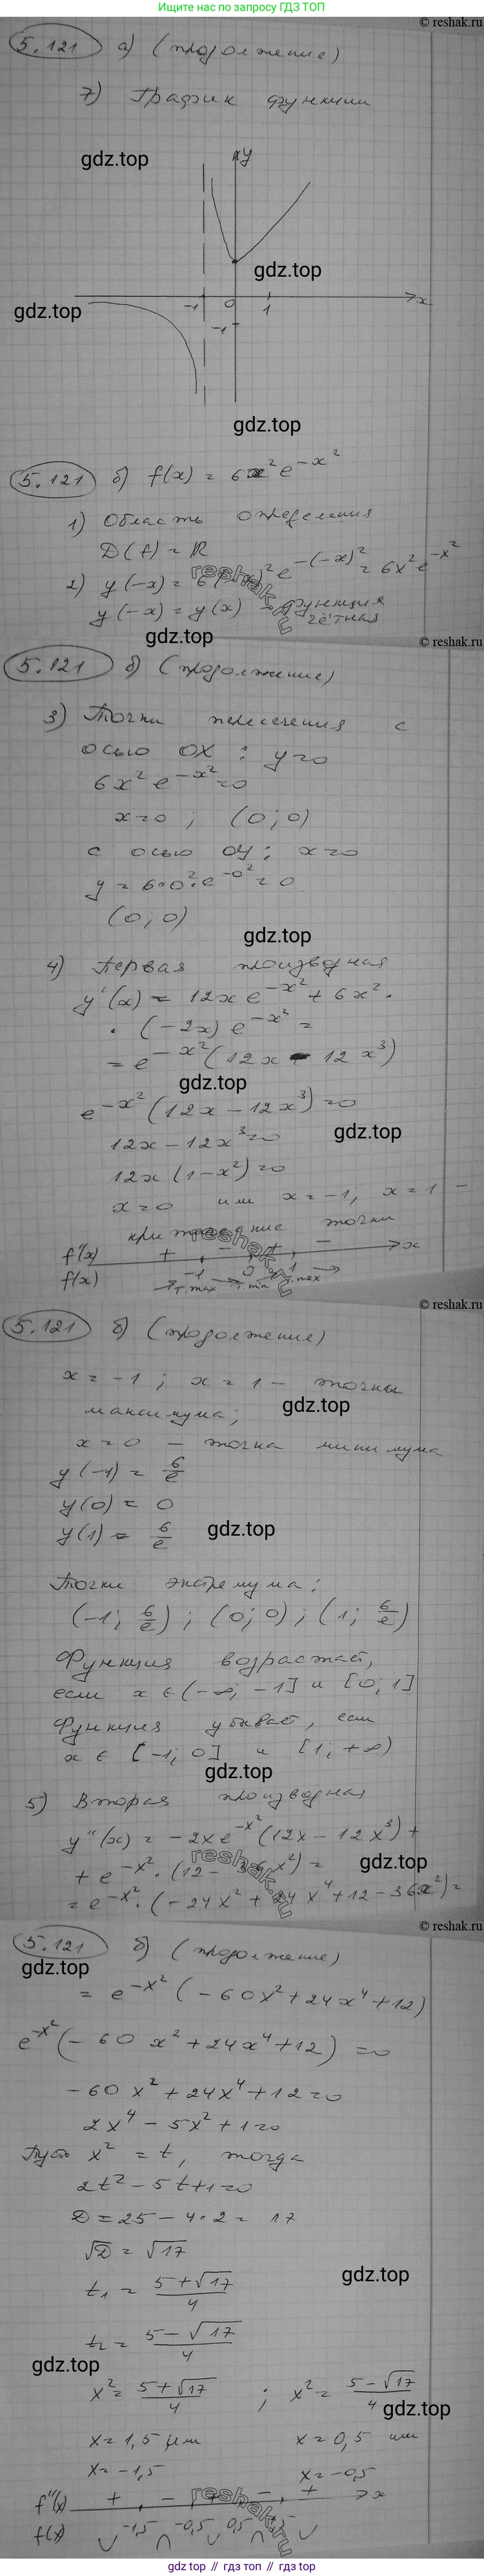 Ищите нас по запросу ГДЗ ТОП
© reshak.ru
5.121 а) (продолжение)
7) График функции
gdz.top
y
gdz.top
gdz.top
-1 0 1 x
-1
gdz.top
5.121 б) f(x) = 6x²e^{-x²}
1) Область определения
D(f) = R
2) y(-x) = 6(-x)²e^{-(-x)²} = 6x²e^{-x²}
reshak.ru
y(-x) = y(x) - функция
чётная
gdz.top
© reshak.ru
5.121 б) (продолжение)
3) Точки пересечения с
осью OX : y=0
6x²e^{-x²}=0
x=0 ; (0;0)
с осью OY: x=0
y = 6·0²·e^{-0²} = 0
(0;0)
gdz.top
4) Первая производная
y'(x) = 12x e^{-x²} + 6x² ·
· (-2x) e^{-x²} =
= e^{-x²}(12x - 12x³)
gdz.top
e^{-x²}(12x - 12x³) = 0
gdz.top
12x - 12x³ = 0
12x(1-x²) = 0
x=0 или x=-1; x=1 -
критические точки
reshak.ru
f'(x) + - + - x
f(x) -1 0 1
т.max т.min т.max
© reshak.ru
5.121 б) (продолжение)
x = -1 ; x = 1 - точки
gdz.top
максимума;
x = 0 - точка минимума
y(-1) = 6/e
y(0) = 0
y(1) = 6/e
gdz.top
Точки экстремума:
(-1; 6/e) ; (0; 0) ; (1; 6/e)
Функция возрастает,
если x ∈ (-∞; -1] и [0; 1]
Функция убывает, если
x ∈ [-1; 0] и [1; +∞)
gdz.top
5) Вторая производная
y''(x) = -2xe^{-x²}(12x - 12x³) +
reshak.ru
+ e^{-x²} · (12 - 36x²) =
gdz.top
= e^{-x²} · (-24x² + 24x⁴ + 12 - 36x²) =
© reshak.ru
5.121 б) (продолжение)
gdz.top
= e^{-x²}(-60x² + 24x⁴ + 12)
e^{-x²}(-60x² + 24x⁴ + 12) = 0
-60x² + 24x⁴ + 12 = 0
2x⁴ - 5x² + 1 = 0
Пусть x² = t, тогда
2t² - 5t + 1 = 0
D = 25 - 4·2 = 17
√D = √17
gdz.top
t₁ = (5+√17)/4
t₂ = (5-√17)/4
gdz.top
x² = (5+√17)/4 ; x² = (5-√17)/4
gdz.top
x = 1,5 или x = 0,5 или
x = -1,5 x = -0,5
reshak.ru
f''(x) + - + - + x
f(x) -1,5 -0,5 0,5 1,5
gdz.top // гдз топ // gdz.top